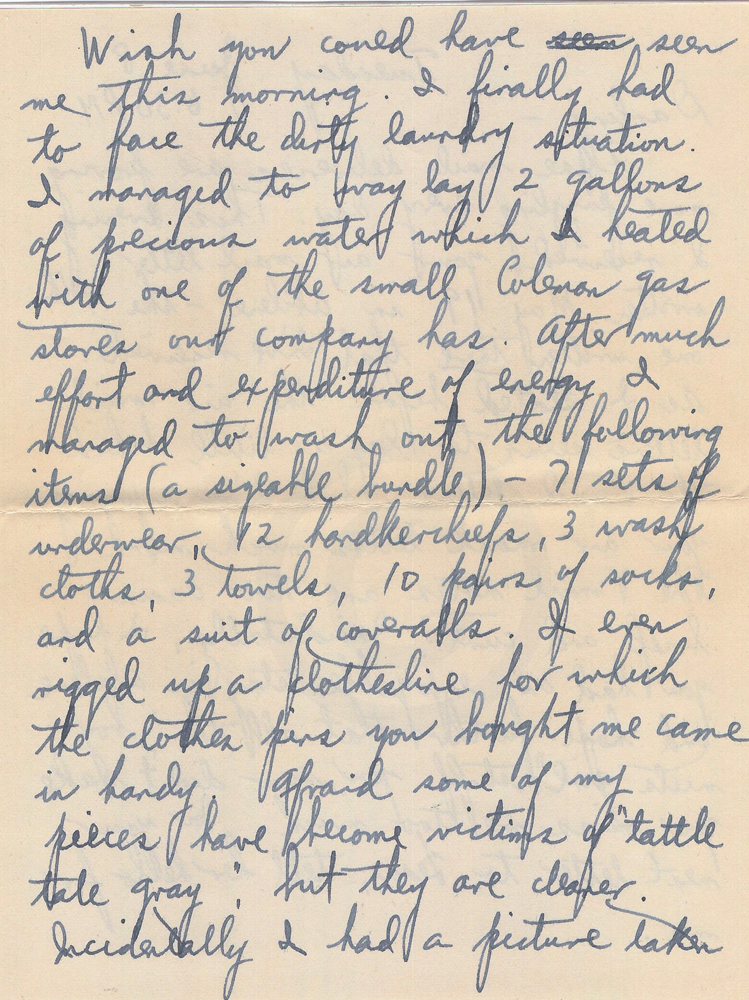 Wish you could have seem seen
me this morning. I finally had
to face the dirty laundry situation.
I managed to way lay 2 gallons
of precious water which I heated
with one of the small Coleman gas
stoves our company has. After much
effort and expenditure of energy I
managed to wash out the following
items (a sizeable bundle) - 7 sets of
underwear, 12 handkerchiefs, 3 wash
cloths, 3 towels, 10 pairs of socks,
and a suit of coveralls. I even
rigged up a clothesline for which
the clothes pins you bought me came
in handy. Afraid some of my
pieces have become victims of "tattle
tale gray", but they are cleaner.
Incidentally I had a picture taken